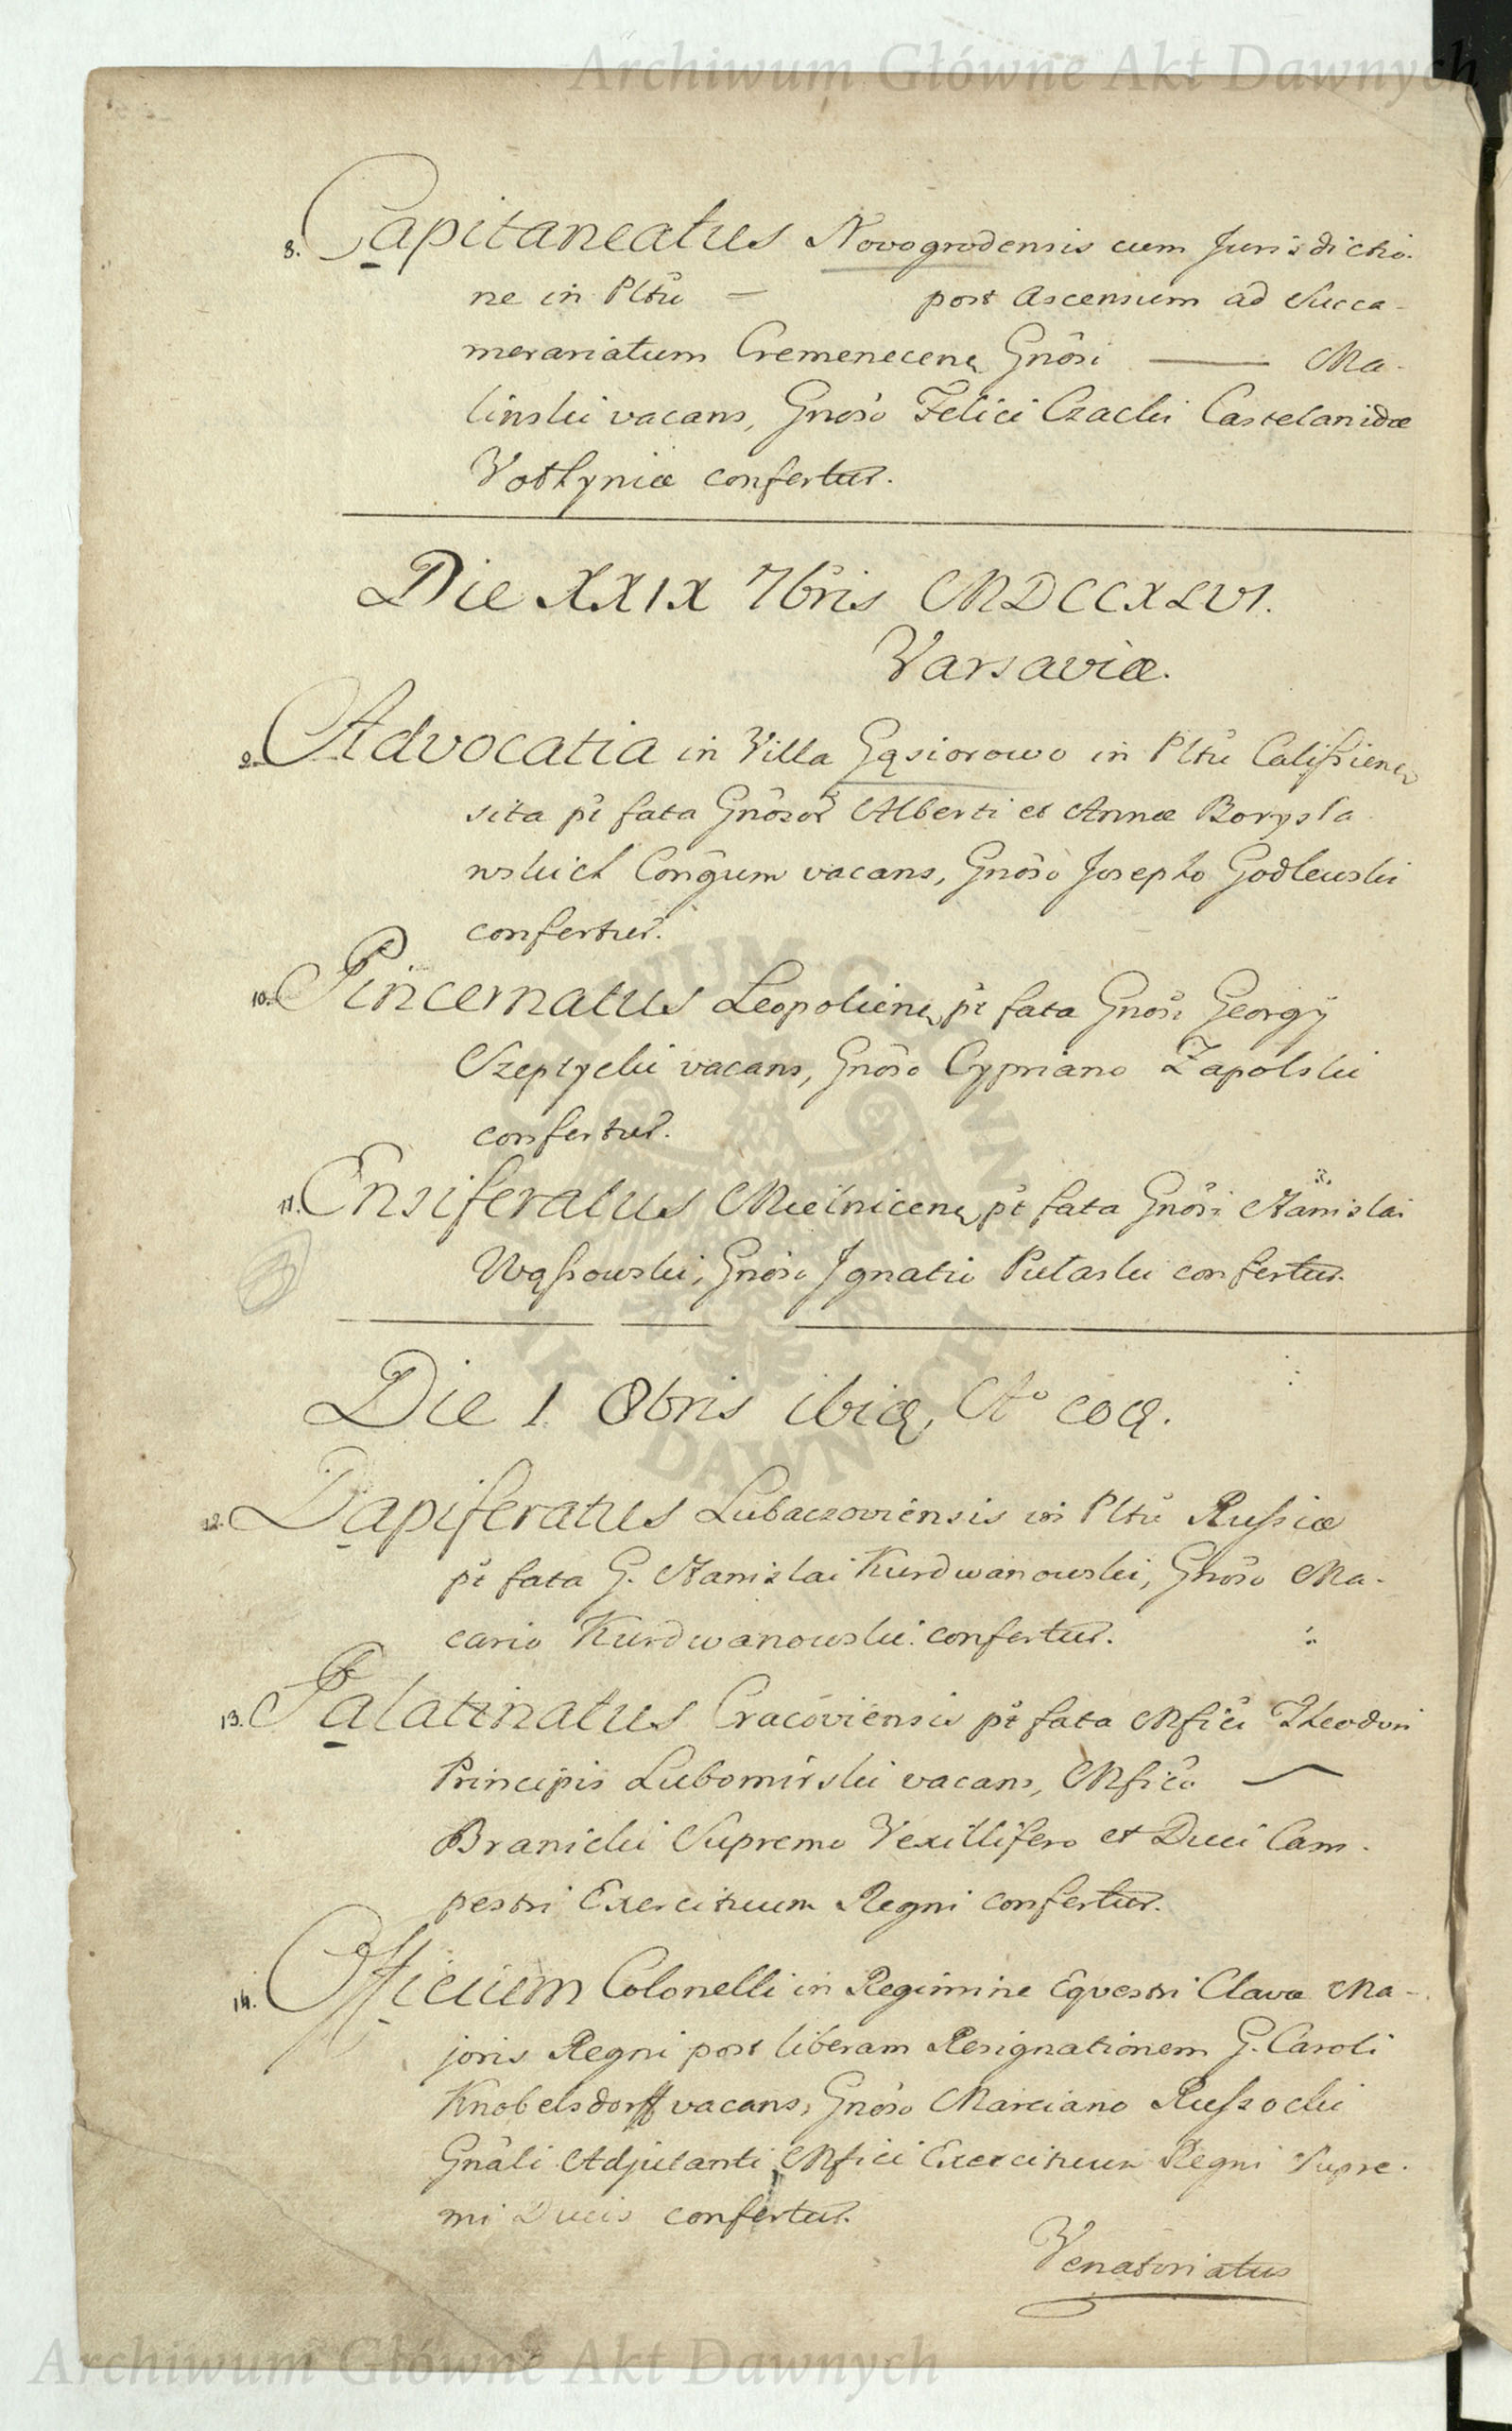 Archiwum Główne Akt Dawnych
8. Capitaneatus Novogrodensis cum Jurisdictio-
ne in Pltũ — post Ascensum ad Succa-
merariatum Cremenecenẽ Gnõsi — Ma-
linski vacans, Gnoso Felici Czacki Castelanidæ
Vołhyniæ confertur.
Die XXIX 7bris MDCCXLVI.
Varsaviæ.
9. Advocatia in Villa Gąsiorowo in Pltũ Calißienẽ
sita pt fata Gnõsor Alberti et Annæ Borysła
wskich Conĝum vacans, Gnõso Josepho Godlewski
confertur.
10. Pincernatus Leopolienẽ pt fata Gnosi Georgÿ
Szeptycki vacans, Gnõso Cypriano Zapolski
confertur.
11. Ensiferatus Mielnicenẽ pt fata Gnõsi Stanislai
Wąßowski, Gnoso Ignatio Pułaski confertur.
Die 1. 8bris ibiq, Aº eoq.
12. Dapiferatus Lubaczoviensis in Pltũ Rußiæ
pt fata G. Stanislai Kurdwanowski, Gnõso Ma-
cario Kurdwanowski confertur.
13. Palatinatus Cracoviensis pt fata Mfici Theodori
Principis Lubomirski vacans, Mfico —
Branicki Supremo Vexillifero et Duci Cam-
pestri Exercituum Regni confertur.
14. Officium Colonelli in Regimine Equestri Clavæ Ma-
joris Regni post liberam Resignationem G. Caroli
Knobelsdorff vacans, Gnõso Marciano Rußocki
Gnãli Adjutanti Mfici Exercituum Regni Supre-
mi Ducis confertur.
Venatoriatus
Archiwum Główne Akt Dawnych